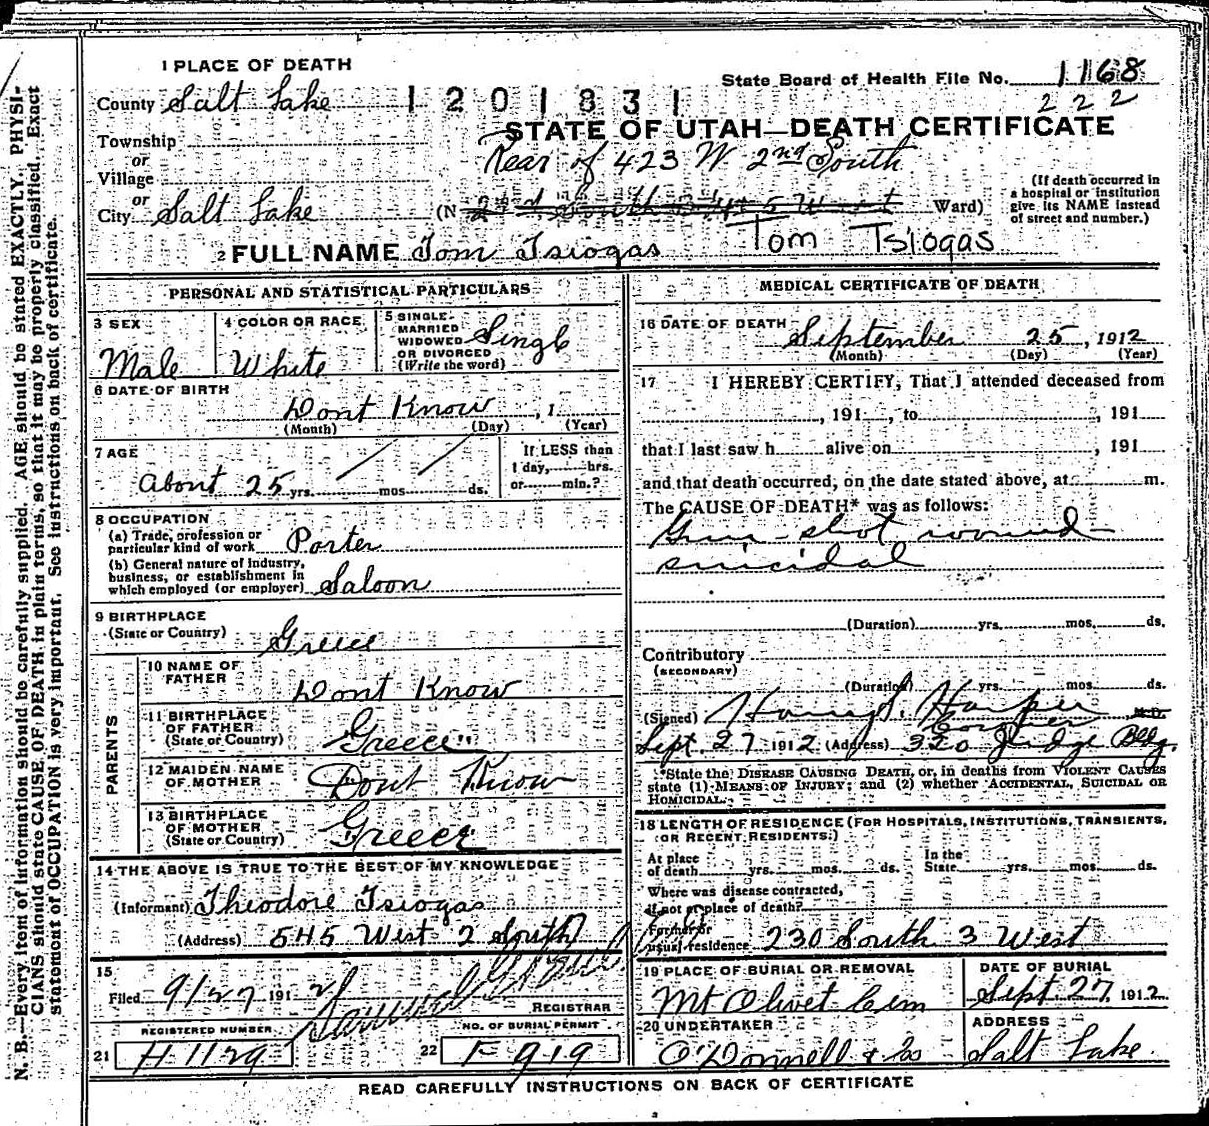 1 PLACE OF DEATH
State Board of Health File No. 1168
County Salt Lake 1201831
222
STATE OF UTAH—DEATH CERTIFICATE
Township
or
Village
Rear of 423 W 2nd South
or
City Salt Lake (N 2nd South Ward)
(If death occurred in
a hospital or institution
give its NAME instead
of street and number.)
2 FULL NAME Tom Tsiogas Tom Tsiogas
PERSONAL AND STATISTICAL PARTICULARS
3 SEX
Male
4 COLOR OR RACE
White
5 SINGLE
MARRIED
WIDOWED
OR DIVORCED
(Write the word)
Single
6 DATE OF BIRTH
Dont Know , 1
(Month) (Day) (Year)
7 AGE
About 25 yrs. mos. ds.
If LESS than
1 day, hrs.
or min.?
8 OCCUPATION
(a) Trade, profession or
particular kind of work Porter
(b) General nature of industry,
business, or establishment in
which employed (or employer) Saloon
9 BIRTHPLACE
(State or Country) Greece
PARENTS
10 NAME OF
FATHER
Dont Know
11 BIRTHPLACE
OF FATHER
(State or Country) Greece
12 MAIDEN NAME
OF MOTHER Dont Know
13 BIRTHPLACE
OF MOTHER
(State or Country) Greece
14 THE ABOVE IS TRUE TO THE BEST OF MY KNOWLEDGE
(Informant) Theodore Tsiogas
(Address) 545 West 2 South
15
Filed 9/27 1912
REGISTRAR
REGISTERED NUMBER
21 H 1129
NO. OF BURIAL PERMIT
22 F 919
MEDICAL CERTIFICATE OF DEATH
16 DATE OF DEATH September 25, 1912
(Month) (Day) (Year)
17 I HEREBY CERTIFY, That I attended deceased from
, 191 , to , 191
that I last saw h alive on , 191
and that death occurred, on the date stated above, at m.
The CAUSE OF DEATH* was as follows:
Gun-shot wound
suicidal
(Duration) yrs. mos. ds.
Contributory
(SECONDARY)
(Duration) yrs. mos. ds.
(Signed) Harry S. Harper M.D.
Coroner
Sept. 27 1912 (Address) 320 Judge Bldg.
*State the DISEASE CAUSING DEATH, or, in deaths from VIOLENT CAUSES
state (1) MEANS OF INJURY; and (2) whether ACCIDENTAL, SUICIDAL OR
HOMICIDAL.
18 LENGTH OF RESIDENCE (FOR HOSPITALS, INSTITUTIONS, TRANSIENTS,
OR RECENT RESIDENTS.)
At place
of death yrs. mos. ds.
In the
State yrs. mos. ds.
Where was disease contracted,
if not at place of death?
Former or
usual residence 230 South 3 West
19 PLACE OF BURIAL OR REMOVAL
Mt Olivet Cem
DATE OF BURIAL
Sept. 27 1912
20 UNDERTAKER
O'Donnell & Co
ADDRESS
Salt Lake
READ CAREFULLY INSTRUCTIONS ON BACK OF CERTIFICATE
N. B.—Every item of information should be carefully supplied. AGE should be stated EXACTLY. PHYSI-
CIANS should state CAUSE OF DEATH in plain terms, so that it may be properly classified. Exact
statement of OCCUPATION is very important. See instructions on back of certificate.